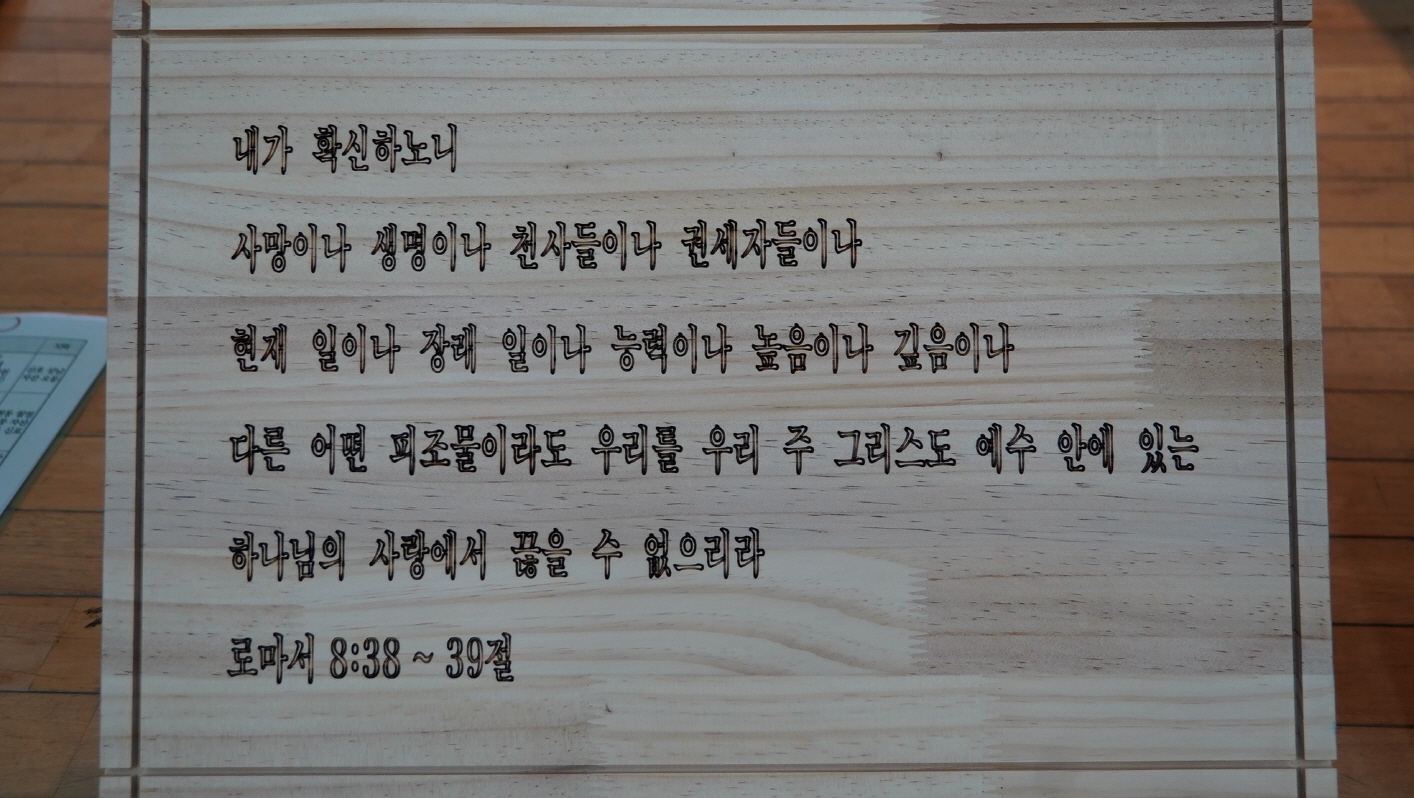 내가 확신하노니
사망이나 생명이나 천사들이나 권세자들이나
현재 일이나 장래 일이나 능력이나 높음이나 깊음이나
다른 어떤 피조물이라도 우리를 우리 주 그리스도 예수 안에 있는
하나님의 사랑에서 끊을 수 없으리라
로마서 8:38 ~ 39절